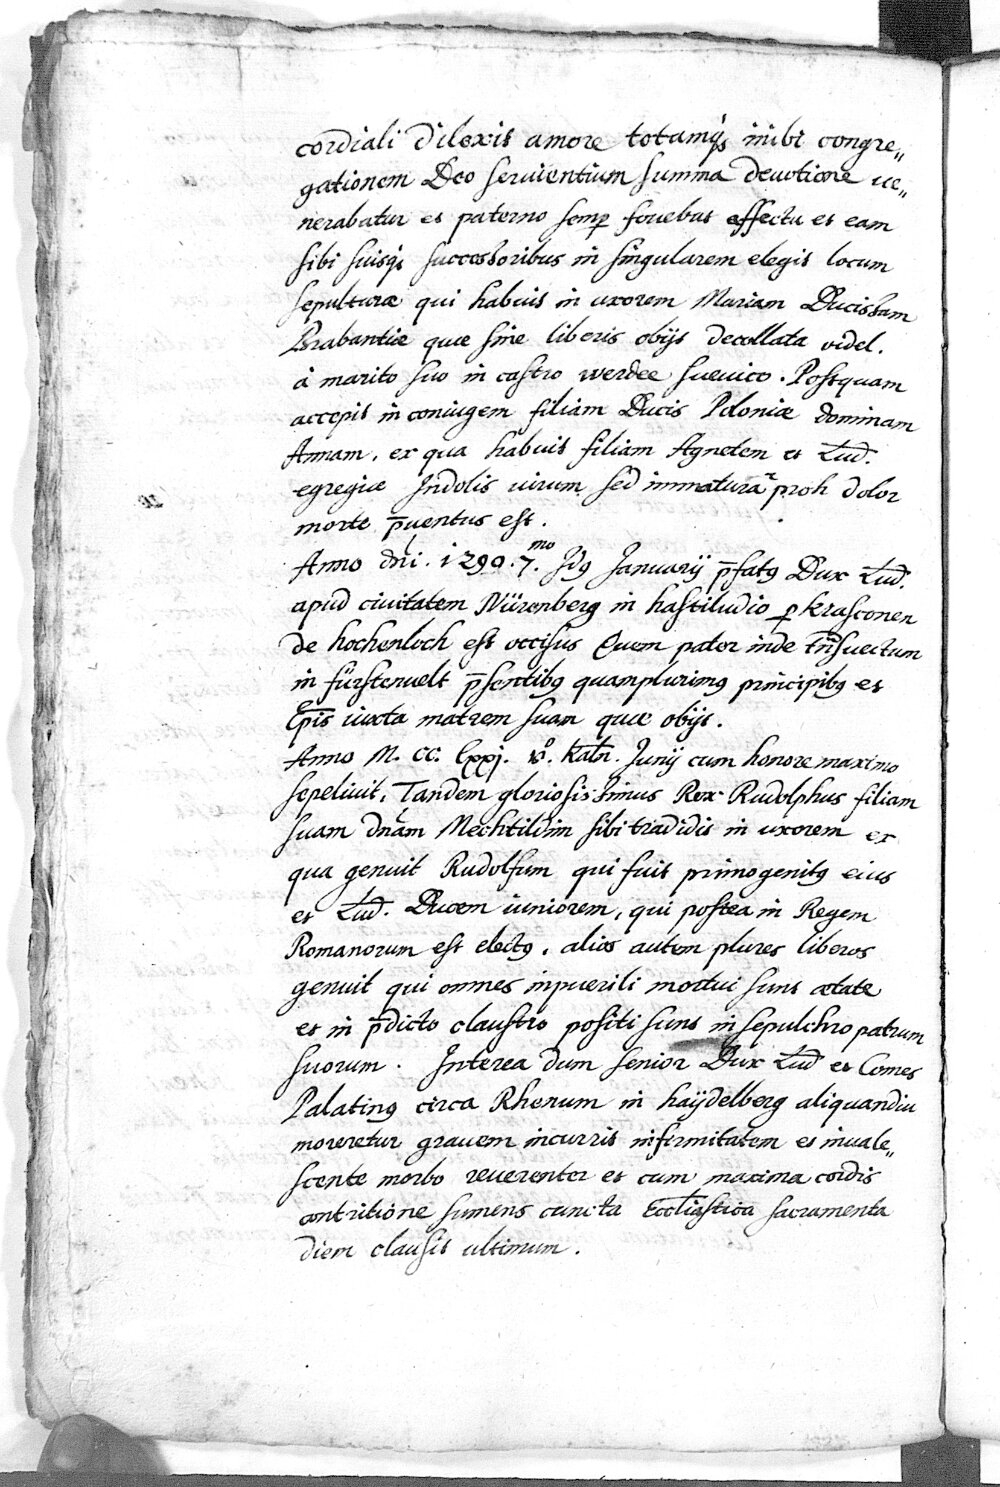 cordiali dilexit amore totamq₃ inibi congre„
gationem Deo seruientium summa deuotione ue„
nerabatur et paterno semp fouebat affectu et eam
sibi suisq₃ successoribus in singularem elegit locum
sepulturæ qui habuit in uxorem Mariam Ducissam
Brabantiæ quæ sine liberis obijt decollata videl.
à marito suo in castro werdee sueuico. Postquam
accepit in coniugem filiam Ducis Poloniæ dominam
Annam, ex qua habuit filiam Agnetem et Lud.
egregiæ Indolis uirum sed immatura proh dolor
morte p̄uentus est.
Anno dn̄i. 1290. 7.mo Idꝯ Januarij p̄fatꝯ Dux Lud.
apud ciuitatem Nürenberg in hastiludio p krasconen
de hochenloch est occisus Quem pater inde trn̄suectum
in fürstenuelt p̄sentibꝯ quamplurimꝯ principibꝯ et
Ep̄is iuxta matrem suam quæ obijt.
Anno M. CC. lxxj. v°. Kaln. Junij cum honore maximo
sepeliuit, Tandem gloriosissimus Rex Rudolphus filiam
suam dn̄am Mechtildim sibi tradidit in uxorem ex
qua genuit Rudolfum qui fuit primogenitꝯ eius
et Lud. Ducem iuniorem, qui postea in Regem
Romanorum est electꝯ, alios autem plures liberos
genuit qui omnes inpuerili mortui sunt ætate
et in p̄dicto claustro positi sunt in sepulchro patrum
suorum. Interea dum senior Dux Lud et Comes
Palatinꝯ circa Rhenum in haÿdelberg aliquandiu
moreretur grauem incurrit infirmitatem et inuale„
scente morbo reuerenter et cum maxima cordis
contritione sumens cuncta Eccliastica sacramenta
diem clausit ultimum.